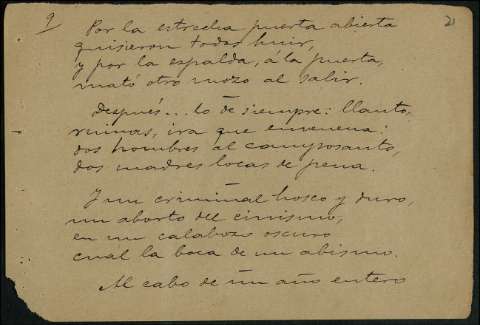 9
21
Por la estrecha puerta abierta
quisieron todos huir,
y por la espalda, á la puerta,
mató otro mozo al salir.
Después... lo de siempre: llanto,
ruinas, ira que envenena:
dos hombres al camposanto,
dos madres locas de pena.
Y un criminal hosco y duro,
un aborto del cinismo,
en un calabozo oscuro
cual la boca de un abismo.
Al cabo de un año entero